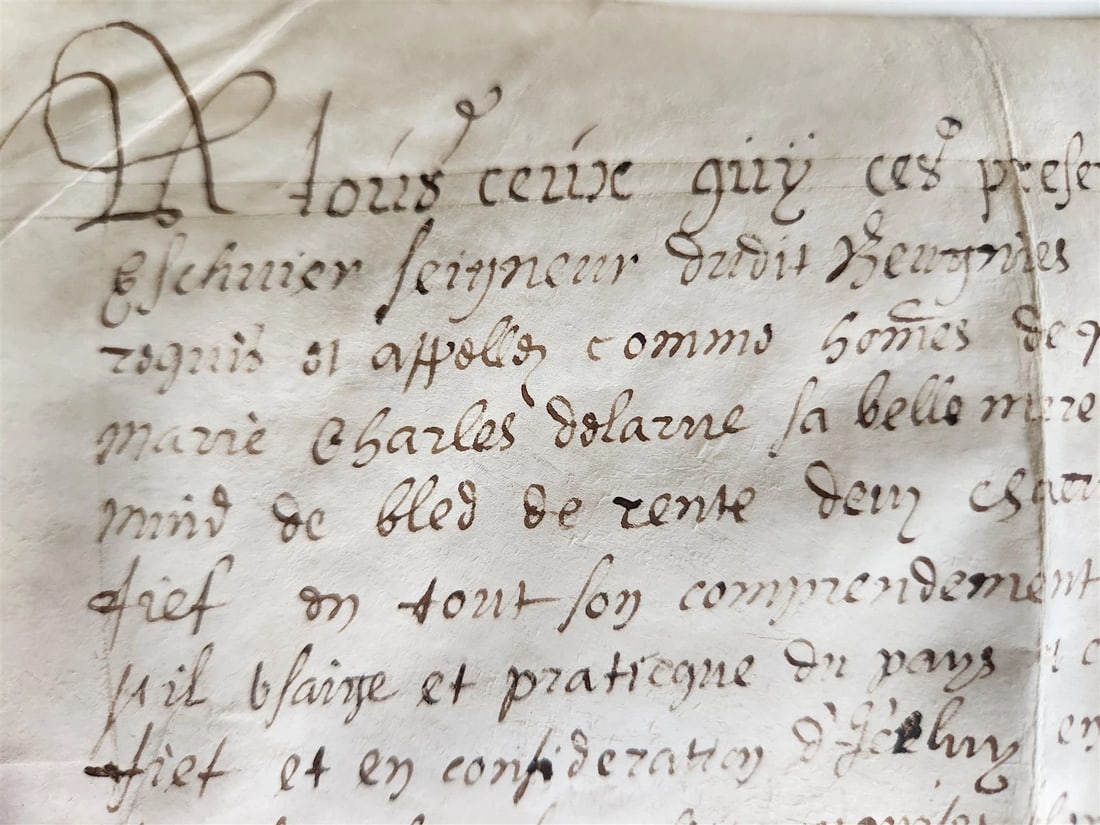 A tous ceux quy ces prese
Eschuier seigneur dudit Beugnies
requis et appellez comme homes de
Marie Charles delarue sa belle mere
muid de bled de rente deux
fief en tout son comprendement
usaige et praticque du pays
fief et en consideration d'Iceluy en